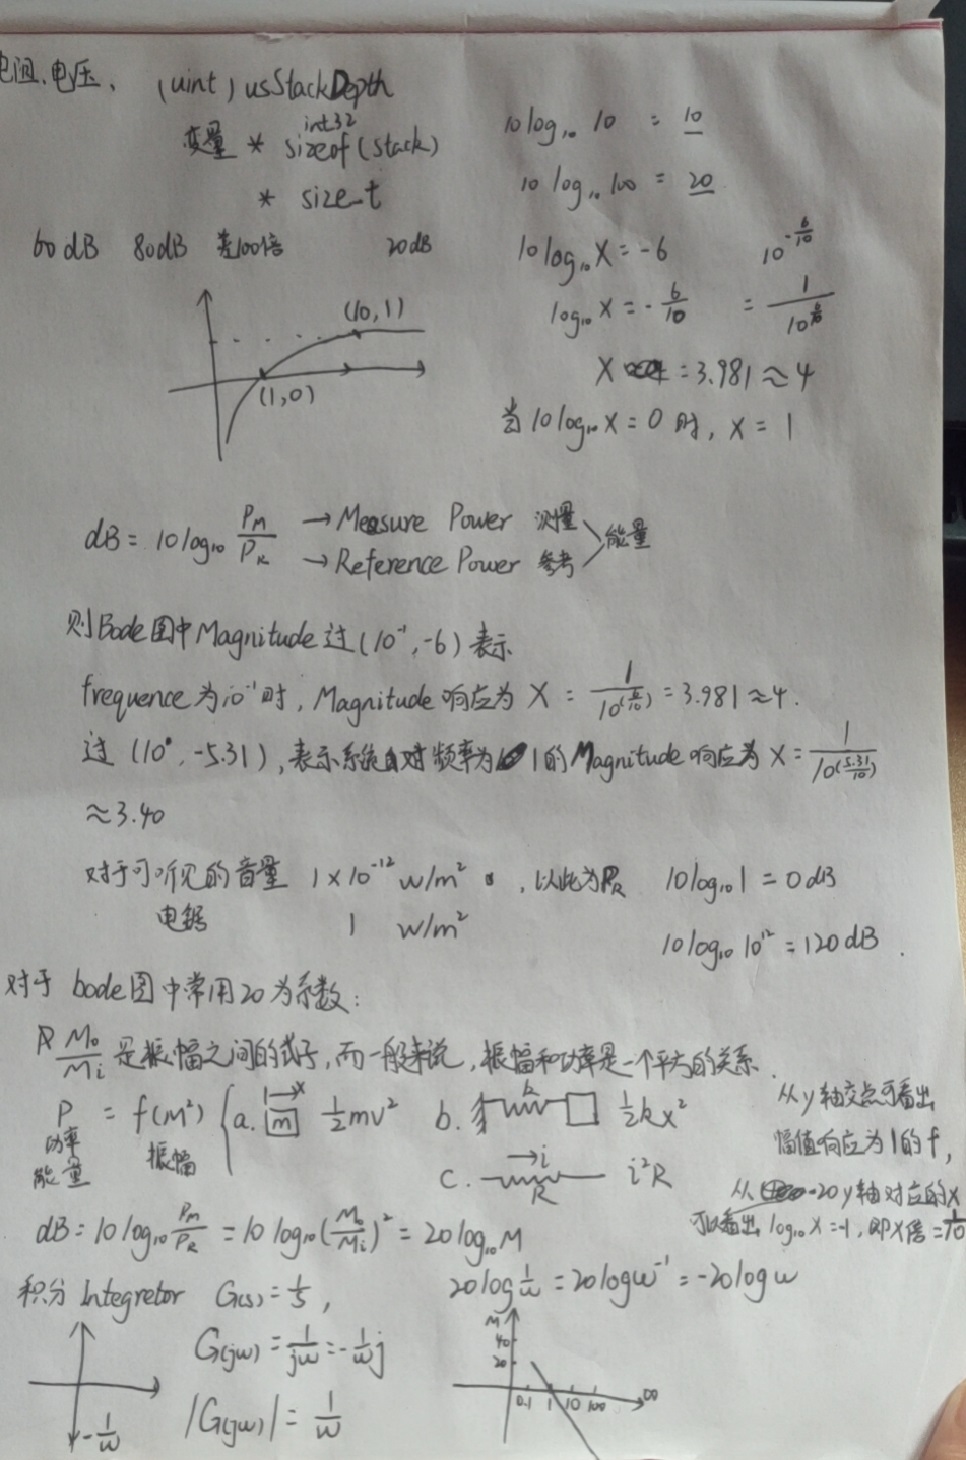 电阻、电压、 (uint) usStackDepth
变量 * sizeof(stack)
int32
* size_t
60 dB 80dB 差100倍 20 dB
(10,1)
(1,0)
10 log₁₀ 10 = 10
10 log₁₀ 100 = 20
10 log₁₀ X = -6 10^(-6/10)
log₁₀ X = -6/10 = 1/10^(6/10)
X = 3.981 ≈ 4
当 10 log₁₀ X = 0 时, X = 1
dB = 10 log₁₀ P_M/P_R → Measure Power 测量 → Reference Power 参考 能量
则Bode图中Magnitude过(10⁻¹, -6)表示
frequence为10⁻¹时, Magnitude响应为 X = 1/10^(6/10) = 3.981 ≈ 4.
过 (10⁰, -5.31), 表示系统对频率为1的Magnitude响应为 X = 1/10^(5.31/10)
≈ 3.40
对于可听见的音量 1×10⁻¹² w/m², 以此为P_R 10 log₁₀ 1 = 0 dB
电锯 1 w/m²
10 log₁₀ 10¹² = 120 dB.
对于 bode图中常用20为系数:
M₀/Mᵢ 是振幅之间的式子, 而一般来说, 振幅和功率是一个平方的关系.
P = f(M²) a. m x ½mv² b. k ½kx²
功率 振幅
能量
c. i R i²R
从y轴交点可看出
幅值响应为1的f,
从 -20 y轴对应的x
可以看出 log₁₀ X = -1, 即X倍 = 1/10
dB = 10 log₁₀ P_M/P_R = 10 log₁₀ (M₀/Mᵢ)² = 20 log₁₀ M
积分 Integretor G(s) = 1/s,
20 log 1/ω = 20 log ω⁻¹ = -20 log ω
G(jω) = 1/jω = -1/ω j
|G(jω)| = 1/ω
-1/ω
M
40
20
0.1 1 10 100 ω